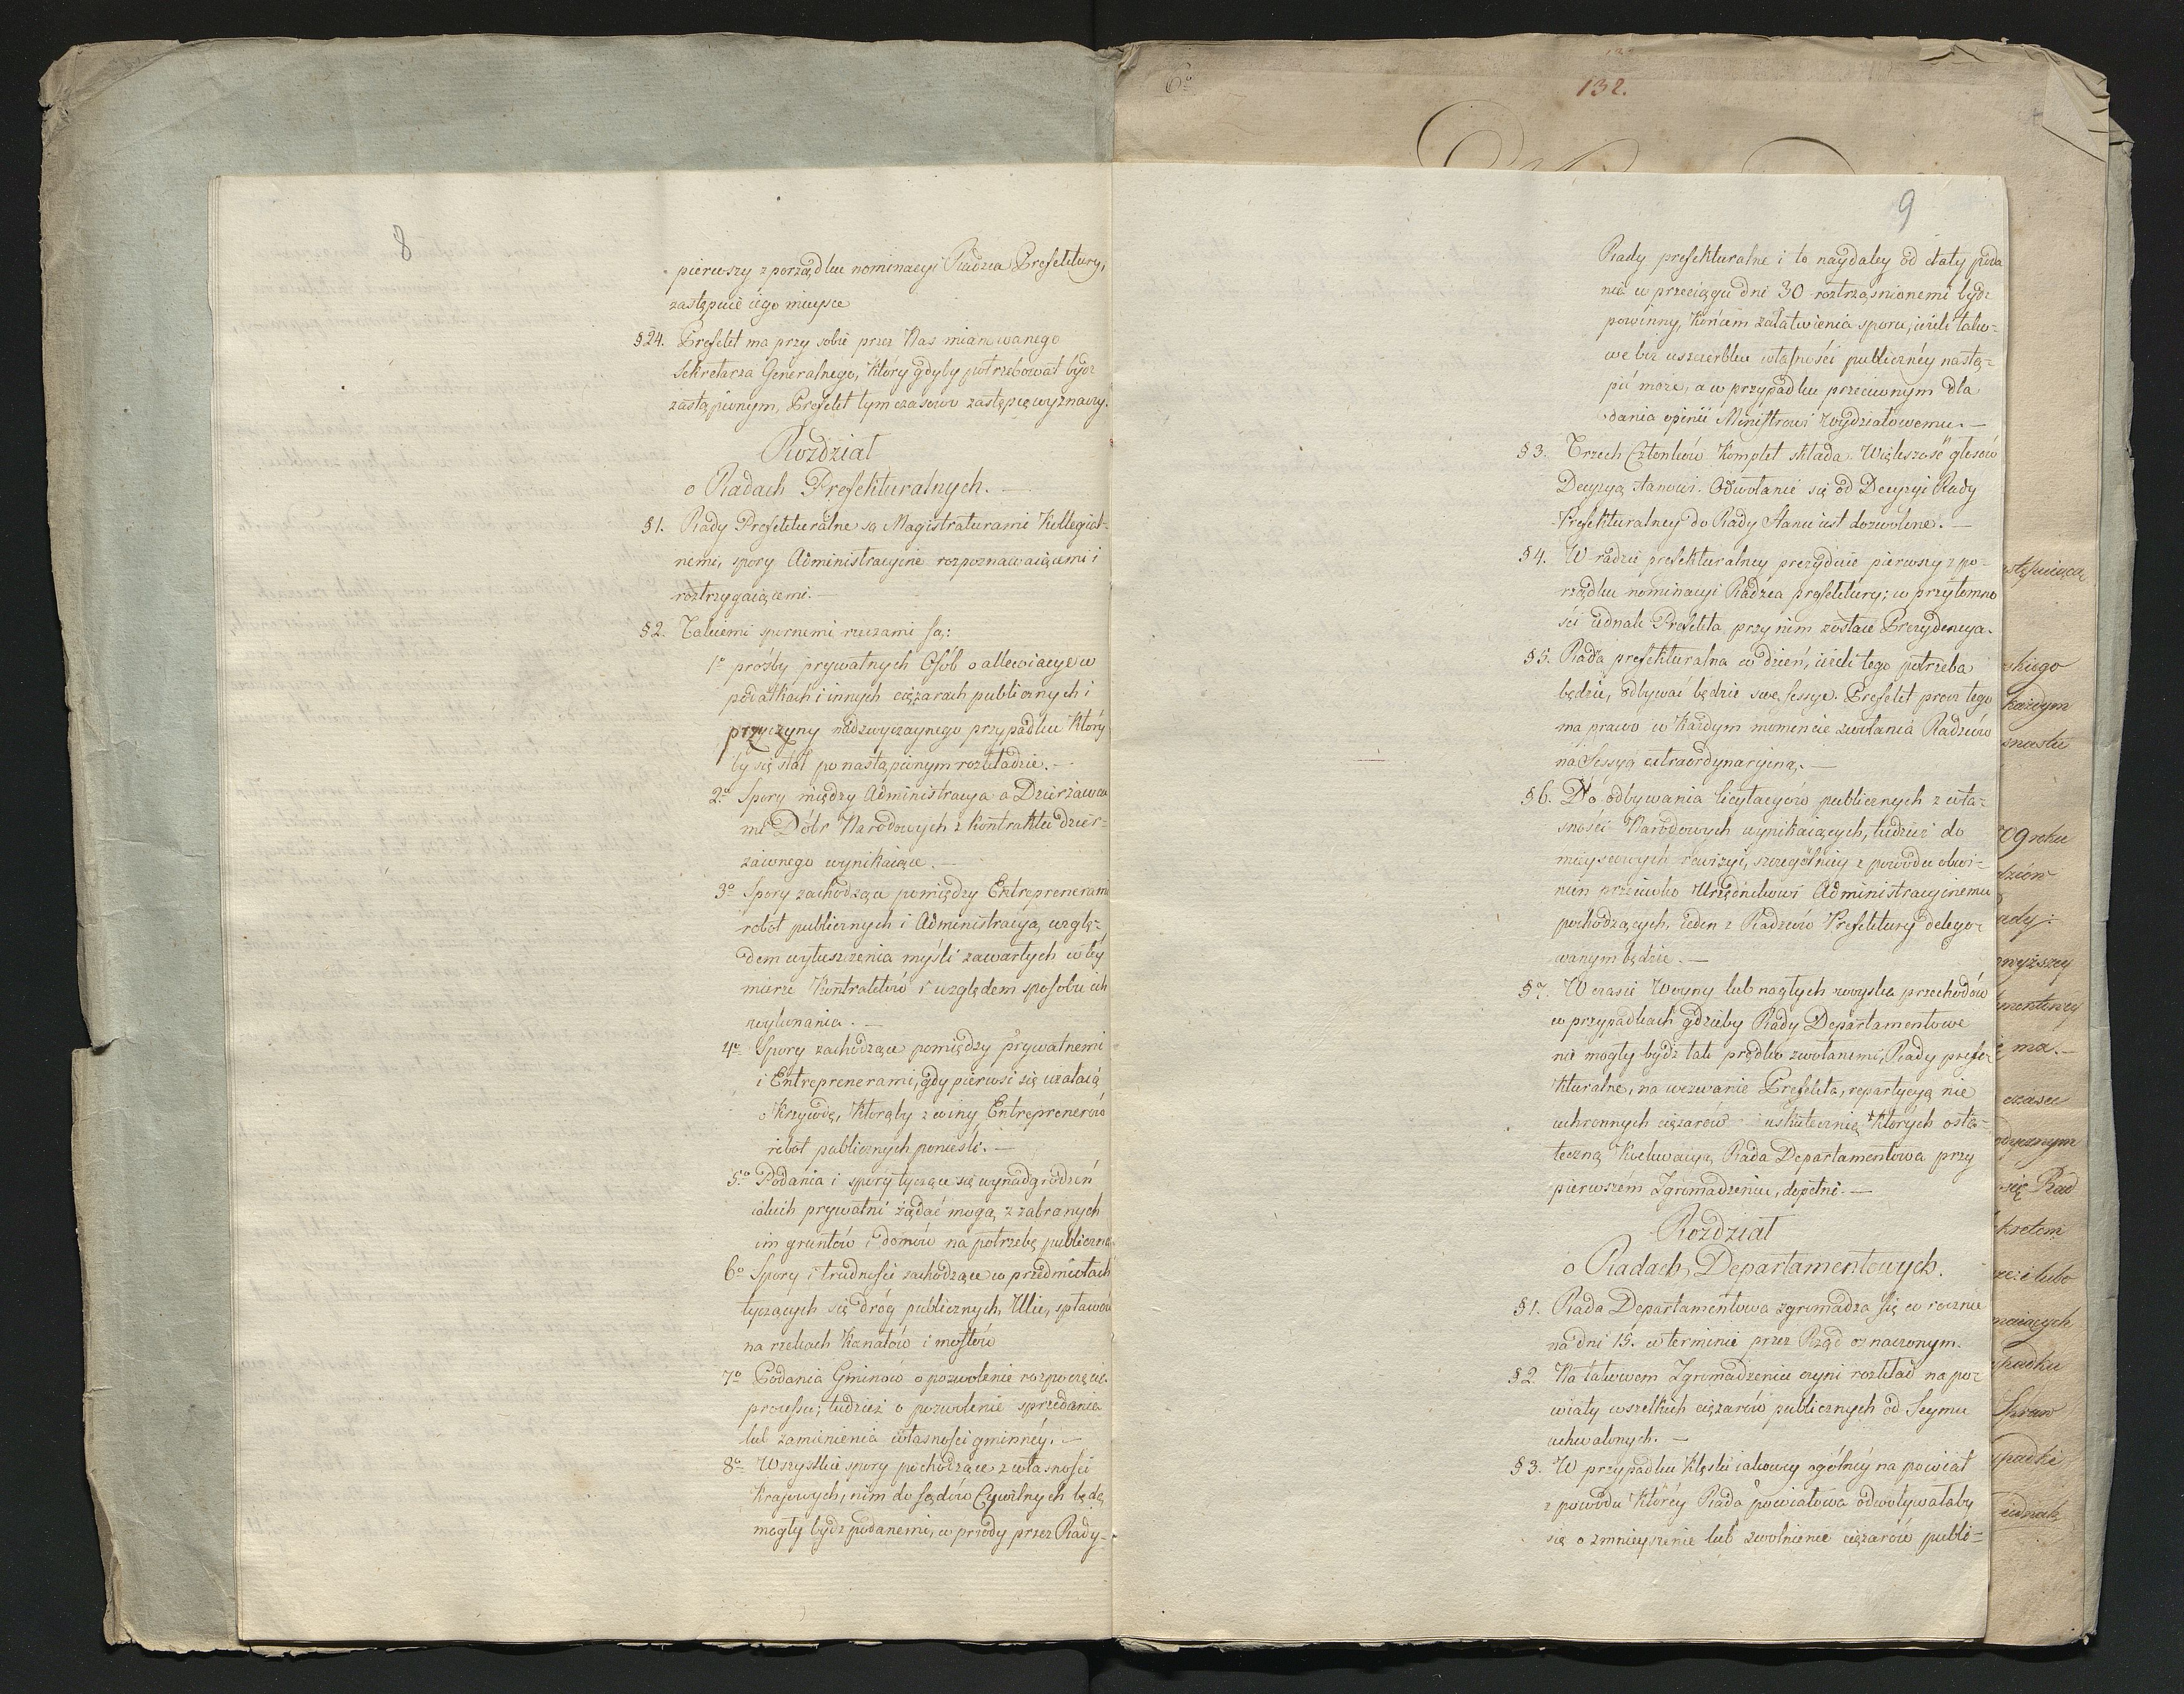 8
pierwszy z porządku nominacyi Radzca Prefektury,
zastępuie iego mieysce
§24. Prefekt ma przy sobie przez Nas mianowanego
Sekretarza Generalnego, który gdyby potrzebował bydz
zastąpionym, Prefekt tymczasowo zastępcę wyznaczy.
Rozdział
o Radach Prefekturalnych. —
§1. Rady Prefekturalne są Magistraturami Kollegial-
nemi, spory Administracyine rozpoznawaiącemi i
roztrzygaiącemi. —
§2. Takiemi spornemi rzeczami są:
1o prozby prywatnych Osób o allewiacye w
podatkach i innych ciężarach publicznych i
przyczyny nadzwyczaynego przypadku który
by się stał po nastąpionym rozkładzie. —
2o Spory między Administracya a Dzierżawca
mi Dóbr Narodowych z kontraktu dzier-
żawnego wynikaiące. —
3o Spory zachodzące pomiędzy Entreprenerami
robót publicznych i Administracyą, wzglę-
dem wytłuszczenia myśli zawartych w tey
mierze Kontraktów i względem sposobu ich
wykonania. —
4o Spory zachodzące pomiędzy prywatnemi
i Entreprenerami, gdy pierwsi się użalaią
o krzywdę, któraby z winy Entreprenerów
robót publicznych ponieśli. —
5o Podania i spory tyczące się wynadgrodzeń
iakich prywatni żądać mogą z zabranych
im gruntów i domów na potrzebę publiczną
6o Spory i trudności zachodzące w przedmiotach
tyczących się dróg publicznych, Ulic, spławów
na rzekach Kanałów i mostów
7o Podania Gminów o pozwolenie rozpoczęcie
processu; tudzież o pozwolenie sprzedania
lub zamienienia własności gminnéy. —
8o Wszystkie spory pochodzące z własności
Kraiowych, nim do sądów Cywilnych będą
mogły bydz podanemi, w przody przez Rady-
6o
132.
9
Rady prefekturalne i to naydaley od daty poda
nia w przeciągu dni 30 roztrząsnionemi bydz
powinny, końcem załatwienia sporu, ieżeli tako-
we bez uszczerbku własności publicznéy nastą-
pić może, a w przypadku przeciwnym dla
dania opinii Ministrowi Wydziałowemu. —
§3. Trzech Członków Komplet składa. Większość głosów
Decyzyą stanowi. Odwołanie się od Decyzyi Rady
Prefekturalney do Rady Stanu iest dozwolone. —
§4. W radzie prefekturalney prezyduie pierwszy z po-
rządku nominacyi Radzca prefektury; w przytomno
ści iednak Prefekta, przy nim zostaie Prezydencya.
§5. Rada prefekturalna co dzień, ieżeli tego potrzeba
będzie, odbywać będzie swe sessye. Prefekt procz tego
ma prawo w każdym momencie zwołania Radzców
na Sessyą extraordynaryiną. —
§6. Do odbywania licytacyów publicznych z wła-
sności Narodowych wynikaiących, tudzież do
mieyscowych rewizyi, szczególniey z powodu obwi-
nien przeciwko Urzędnikowi Administracyinemu
pochodzących, ieden z Radzców Prefektury delego-
wanym będzie. —
§7. W czasie Woyny lub nagłych woyska przechodów
w przypadkach gdzieby Rady Departamentowe
nie mogły bydz tak prędko zwołanemi, Rady prefe-
kturalne, na wezwanie Prefekta, repartycyą nie
uchronnych ciężarów uskutecznią, których osta-
teczną Ewaluacyą Rada Departamentowa przy
pierwszém Zgromadzeniu, dopełni. —
Rozdział
o Radach Departamentowych.
§1. Rada Departamentowa zgromadza się co rocznie
na dni 15. w terminie przez Rząd oznaczonym.
§2. Na takowem Zgromadzeniu czyni rozkład na po-
wiaty wszelkich ciężarów publicznych od Seymu
uchwalonych. —
§3. W przypadku klęski iakowey ogólnéy na powiat
z powodu któréy Rada powiatowa odwoływałaby
się o zmnieyszenie lub zwolnienie ciężarów publi-
skiego
każdym
09 roku
ady:
wyższey
ma. —
czasu
się Rad
padku
iednak